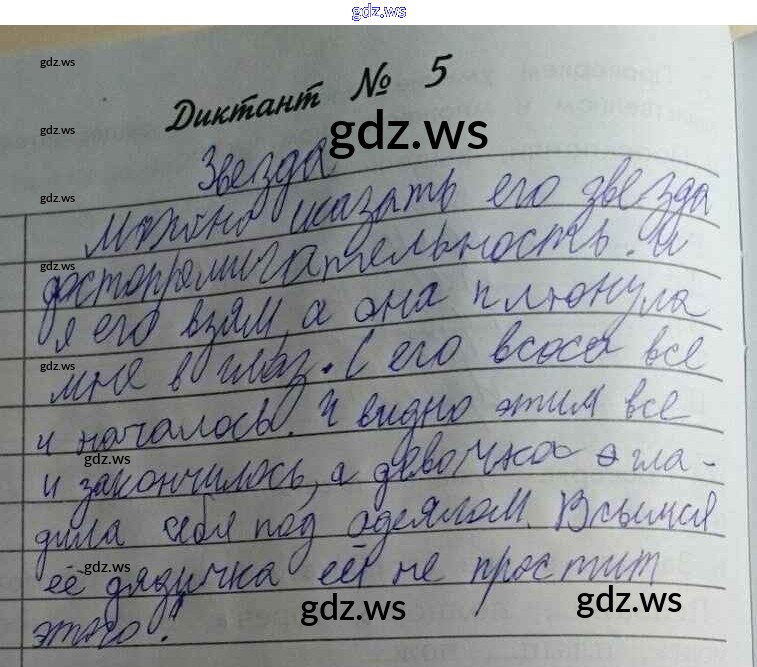 gdz.ws
gdz.ws
Диктант № 5
gdz.ws
gdz.ws
Звезда
Можно сказать его звезда
gdz.ws
достопромичательность. И
gdz.ws
я его взям, а она плюнула
gdz.ws
мне в глаз. С его всоса все
и началось. И видно этим все
gdz.ws
и закончилось, а девочка гла-
дила себя под одеялом.
gdz.ws
её дядичка её не простит
gdz.ws
gdz.ws
этого!